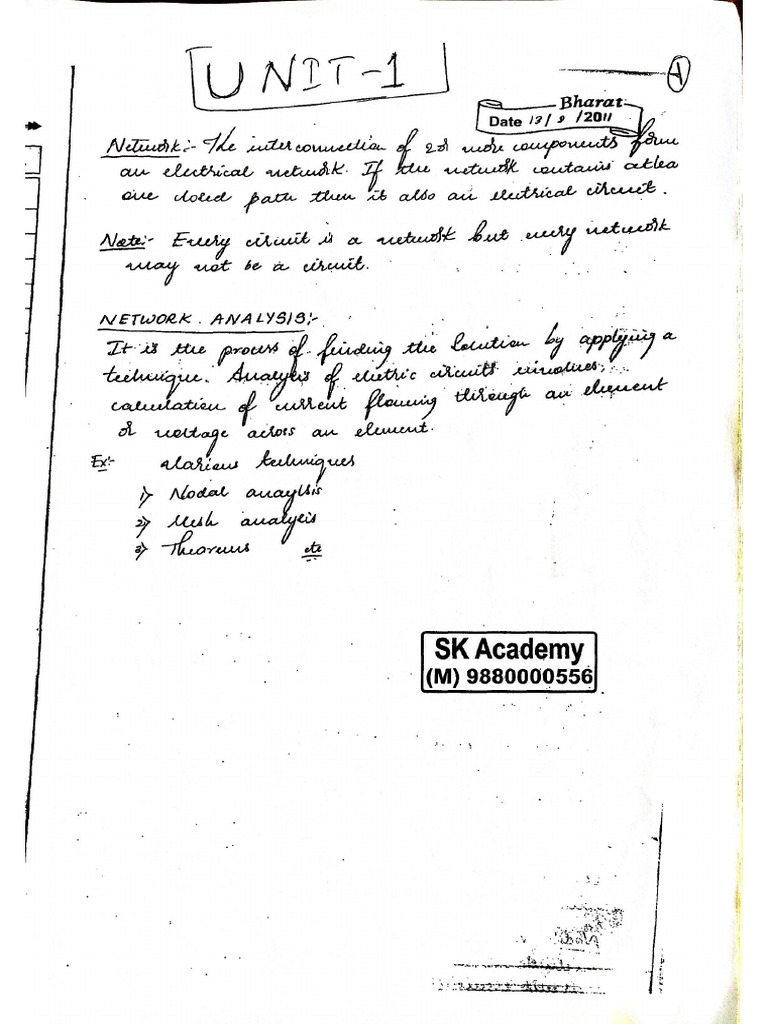 UNIT-1
1
Bharat
Date 13/9/2011
Network:- The interconnection of 2 or more components form
an electrical network. If the network contains atlea
one closed path then it is also an electrical circuit.
Note:- Every circuit is a network but every network
may not be a circuit.
NETWORK ANALYSIS:-
It is the process of finding the solution by applying a
technique. Analysis of electric circuits involves
calculation of current flowing through an element
or voltage across an element.
Ex:- Various techniques
1) Nodal anaylsis
2) Mesh analysis
3) Theorems etc
SK Academy
(M) 9880000556